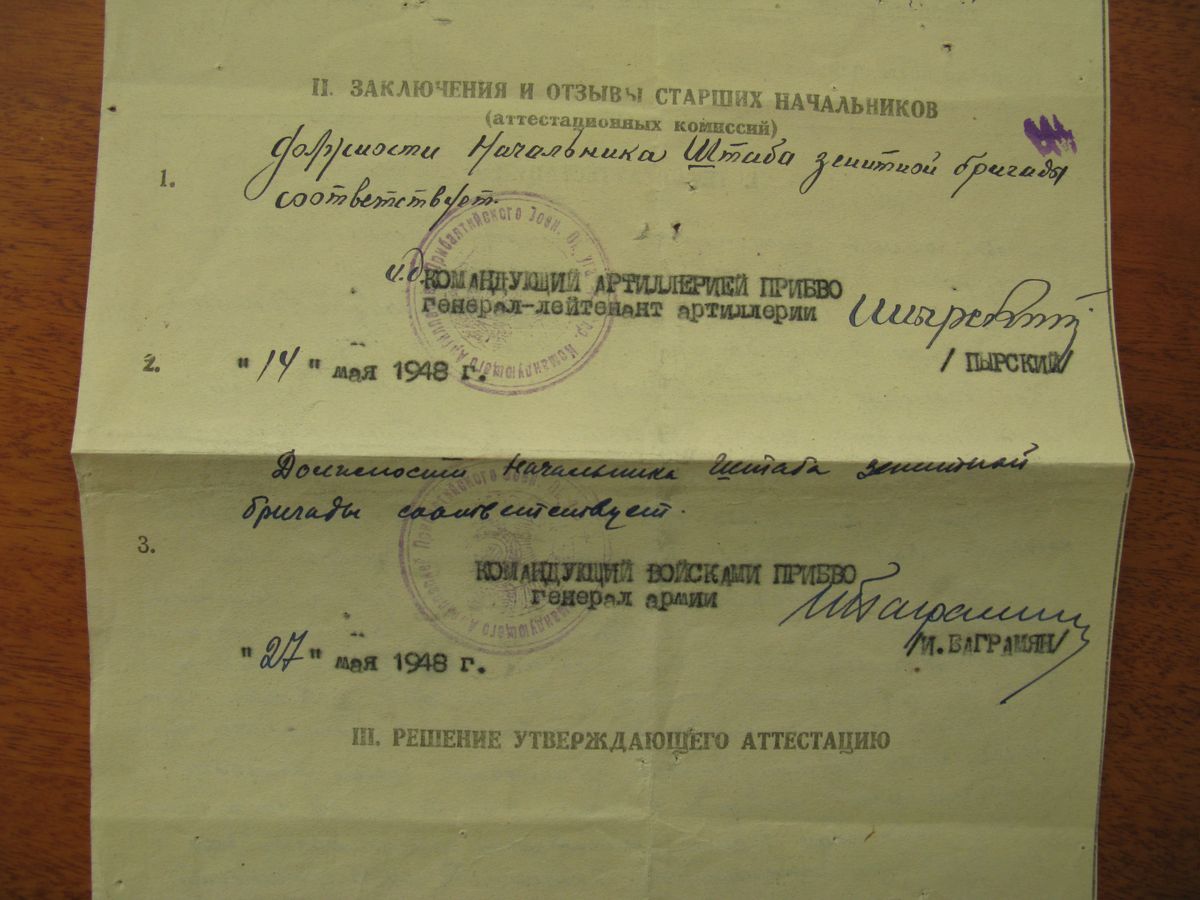 II. ЗАКЛЮЧЕНИЯ И ОТЗЫВЫ СТАРШИХ НАЧАЛЬНИКОВ
(аттестационных комиссий)
1. должности Начальника Штаба зенитной бригады
соответствует.
и.д. КОМАНДУЮЩИЙ АРТИЛЛЕРИЕЙ ПРИБВО
генерал-лейтенант артиллерии
/ ПЫРСКИЙ/
2. "14" мая 1948 г.
Должности Начальника Штаба зенитной
бригады соответствует.
3.
КОМАНДУЮЩИЙ ВОЙСКАМИ ПРИБВО
генерал армии
/И. БАГРАМЯН/
"27" мая 1948 г.
III. РЕШЕНИЕ УТВЕРЖДАЮЩЕГО АТТЕСТАЦИЮ